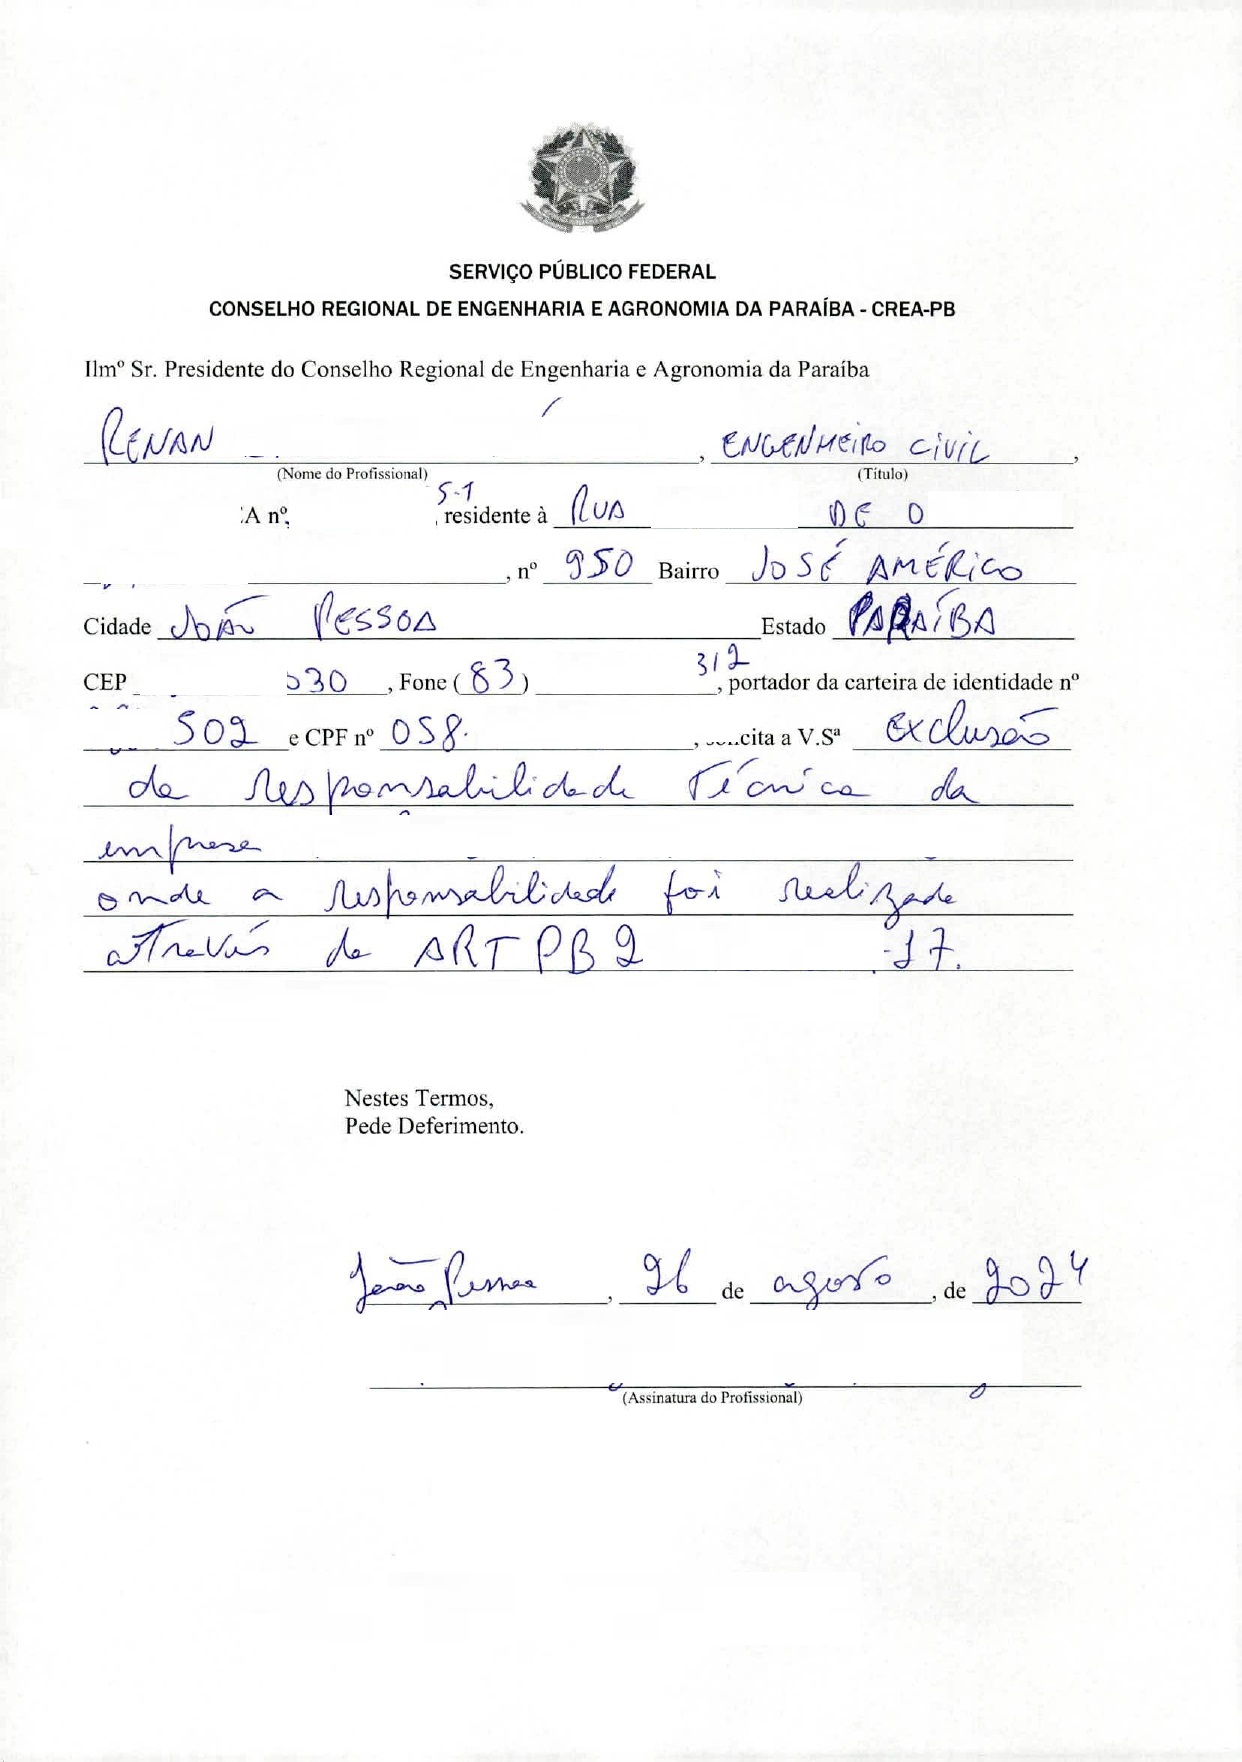 SERVIÇO PÚBLICO FEDERAL
CONSELHO REGIONAL DE ENGENHARIA E AGRONOMIA DA PARAÍBA - CREA-PB
Ilmº Sr. Presidente do Conselho Regional de Engenharia e Agronomia da Paraíba
RENAN , ENGENHEIRO CIVIL ,
(Nome do Profissional) (Título)
A nº, 5-1 , residente à RUA DE O
, nº 950 Bairro JOSÉ AMÉRICO
Cidade JOÃO PESSOA Estado PARAÍBA
CEP 530 , Fone ( 83 ) 312 , portador da carteira de identidade nº
502 e CPF nº 058. , cita a V.Sª exclusão
da responsabilidade Técnica da
empresa
onde a responsabilidade foi realizada
através da ART PB2 -17.
Nestes Termos,
Pede Deferimento.
João Pessoa , 26 de agosto , de 2024
(Assinatura do Profissional)